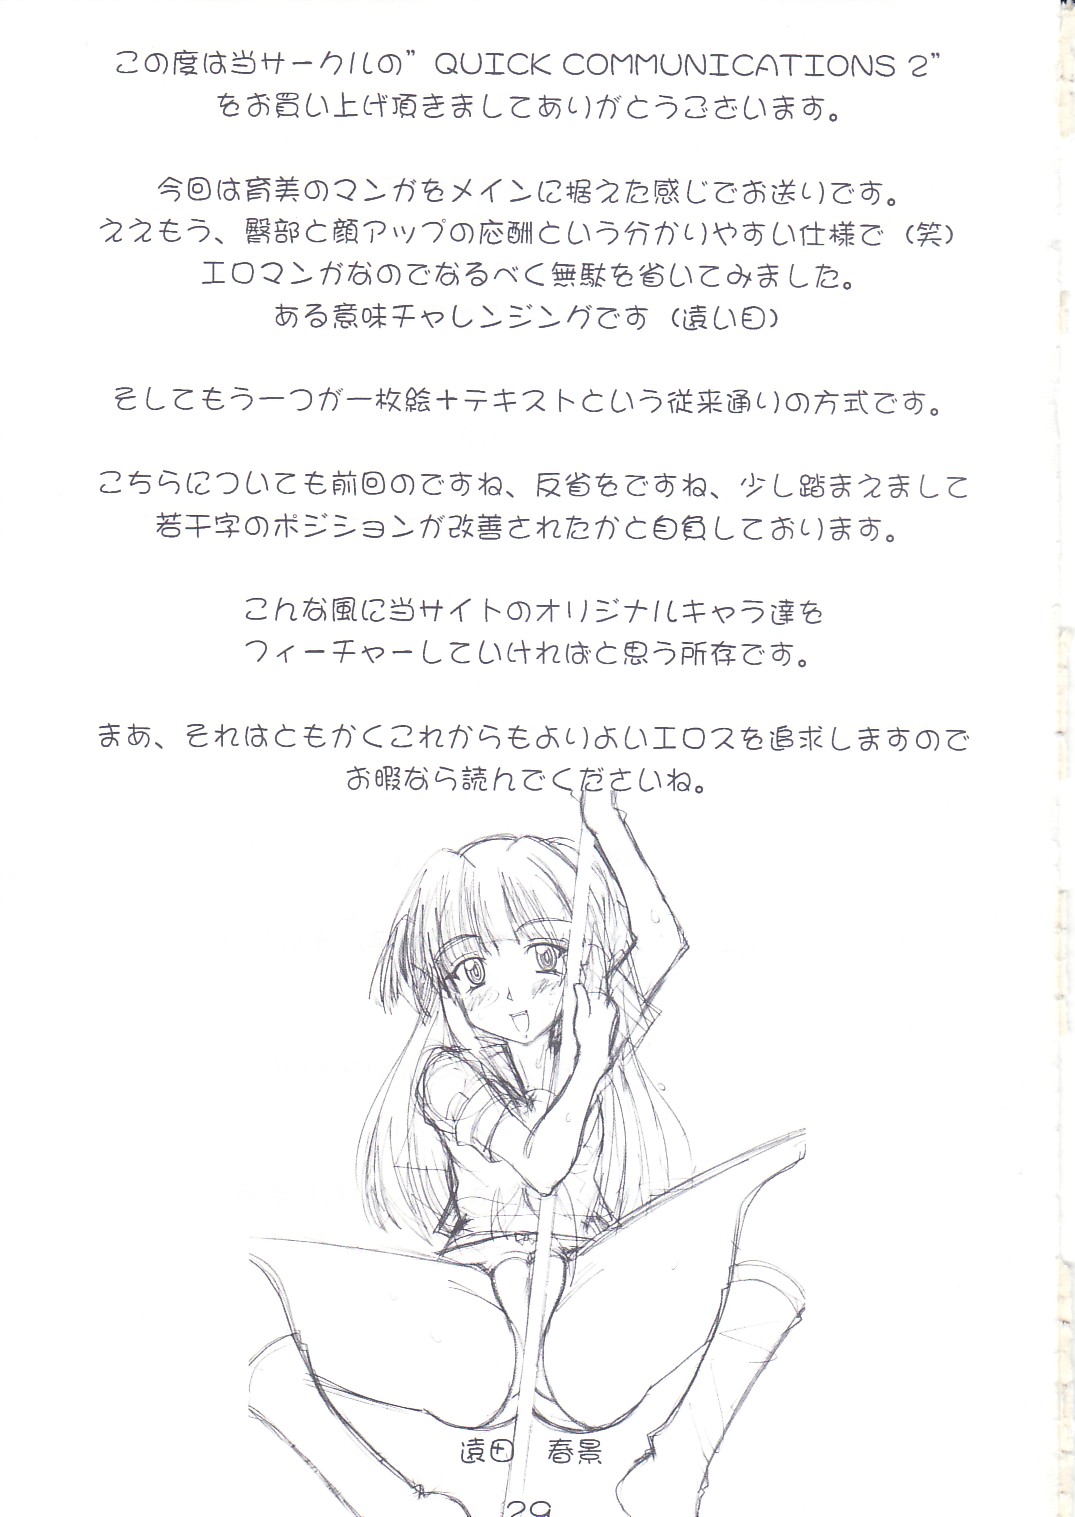 この度は当サークルの”QUICK COMMUNICATIONS 2”
をお買い上げ頂きましてありがとうございます。
今回は育美のマンガをメインに据えた感じでお送りです。
ええもう、臀部と顔アップの応酬という分かりやすい仕様で（笑）
エロマンガなのでなるべく無駄を省いてみました。
ある意味チャレンジングです（遠い目）
そしてもう一つが一枚絵＋テキストという従来通りの方式です。
こちらについても前回のですね、反省をですね、少し踏まえまして
若干字のポジションが改善されたかと自負しております。
こんな風に当サイトのオリジナルキャラ達を
フィーチャーしていければと思う所存です。
まあ、それはともかくこれからもよりよいエロスを追求しますので
お暇なら読んでくださいね。
遠田　春景
29